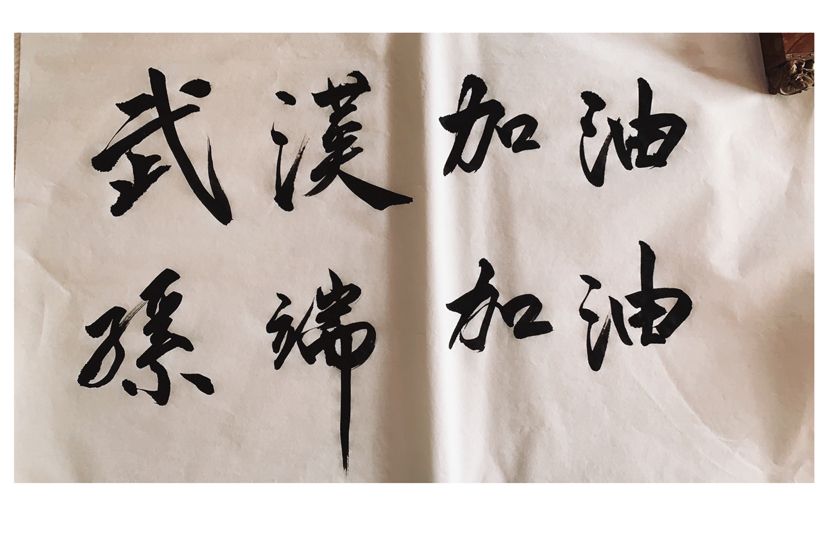 武漢加油
孫端加油